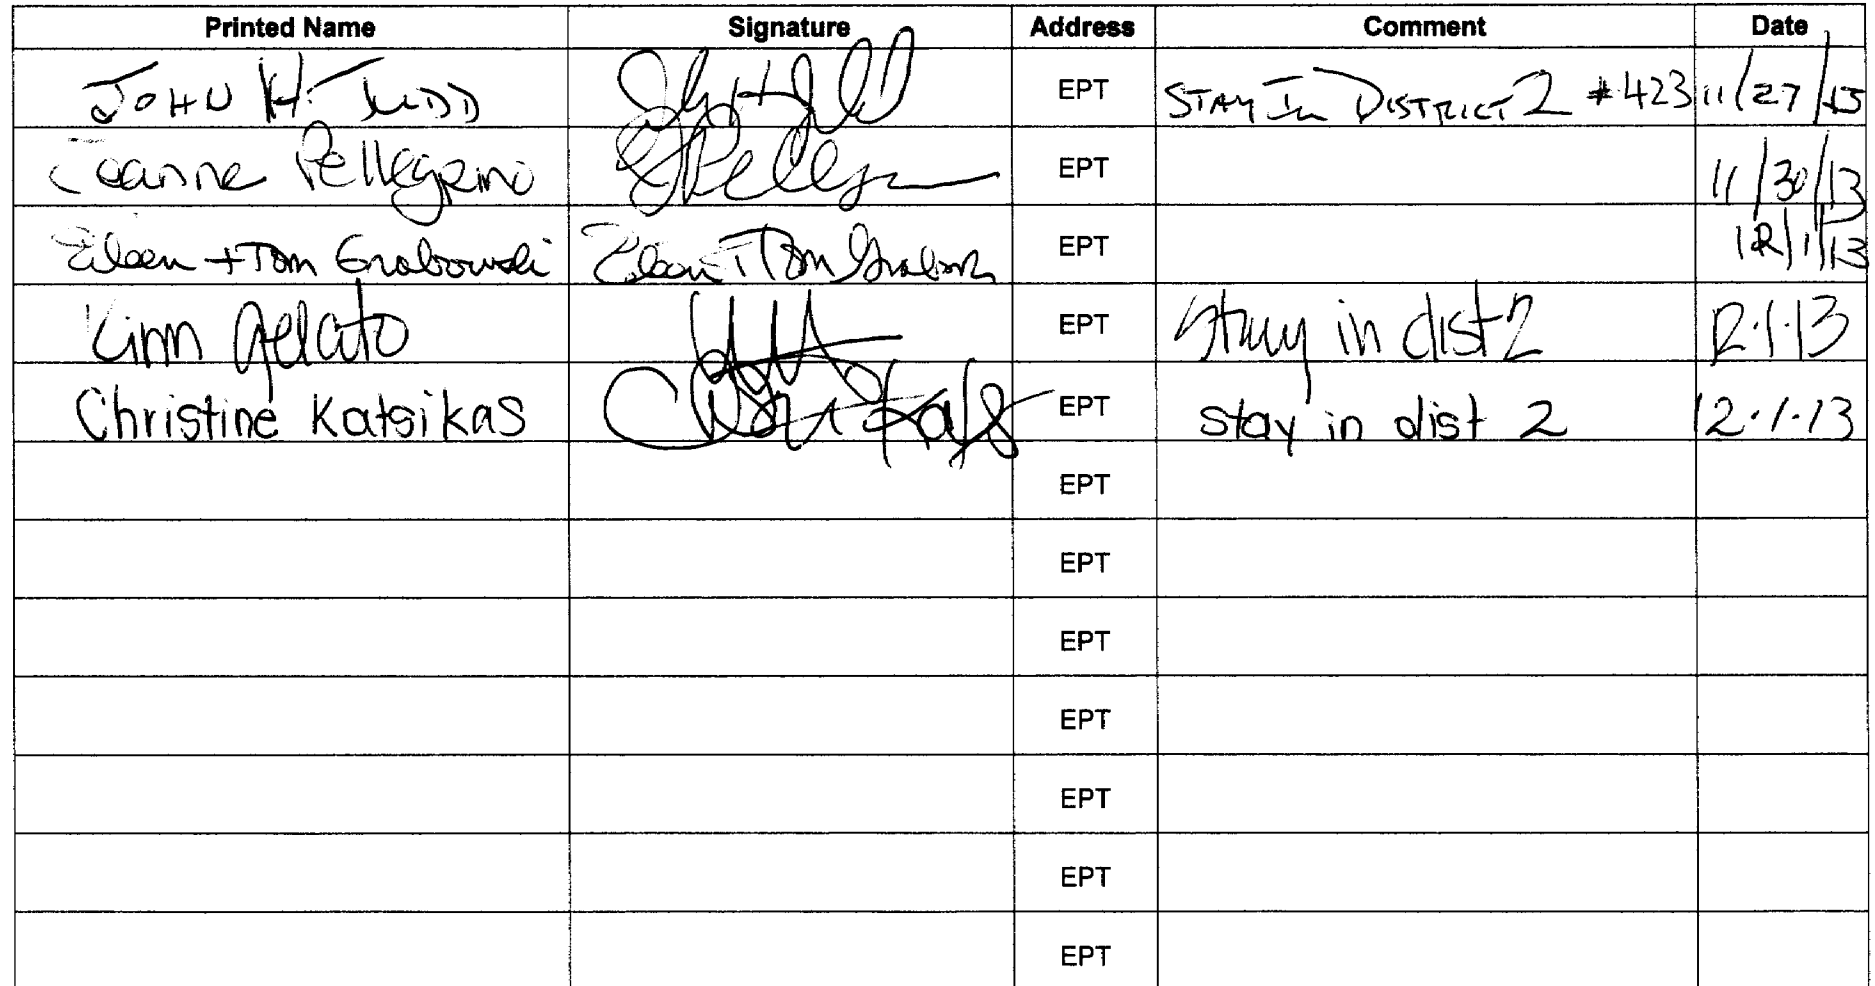 Printed Name Signature Address Comment Date
JOHN H. JUDD EPT STAY IN DISTRICT 2 #423 11/27/13
Joanne Pellegrino EPT 11/30/13
Eileen + Tom Grabowski Eileen + Tom Grabowski EPT 12/1/13
Kim Gelato EPT Stay in dist 2 12.1.13
Christine Katsikas EPT stay in dist 2 12.1.13
EPT
EPT
EPT
EPT
EPT
EPT
EPT